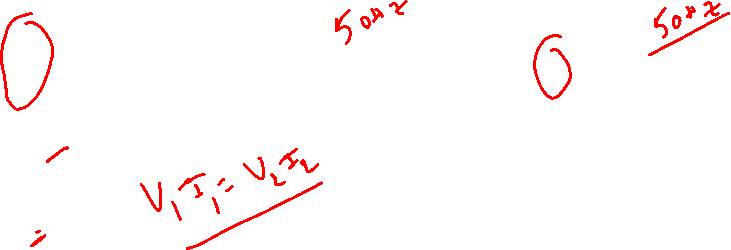 50Hz
50Hz
V₁I₁ = V₂I₂